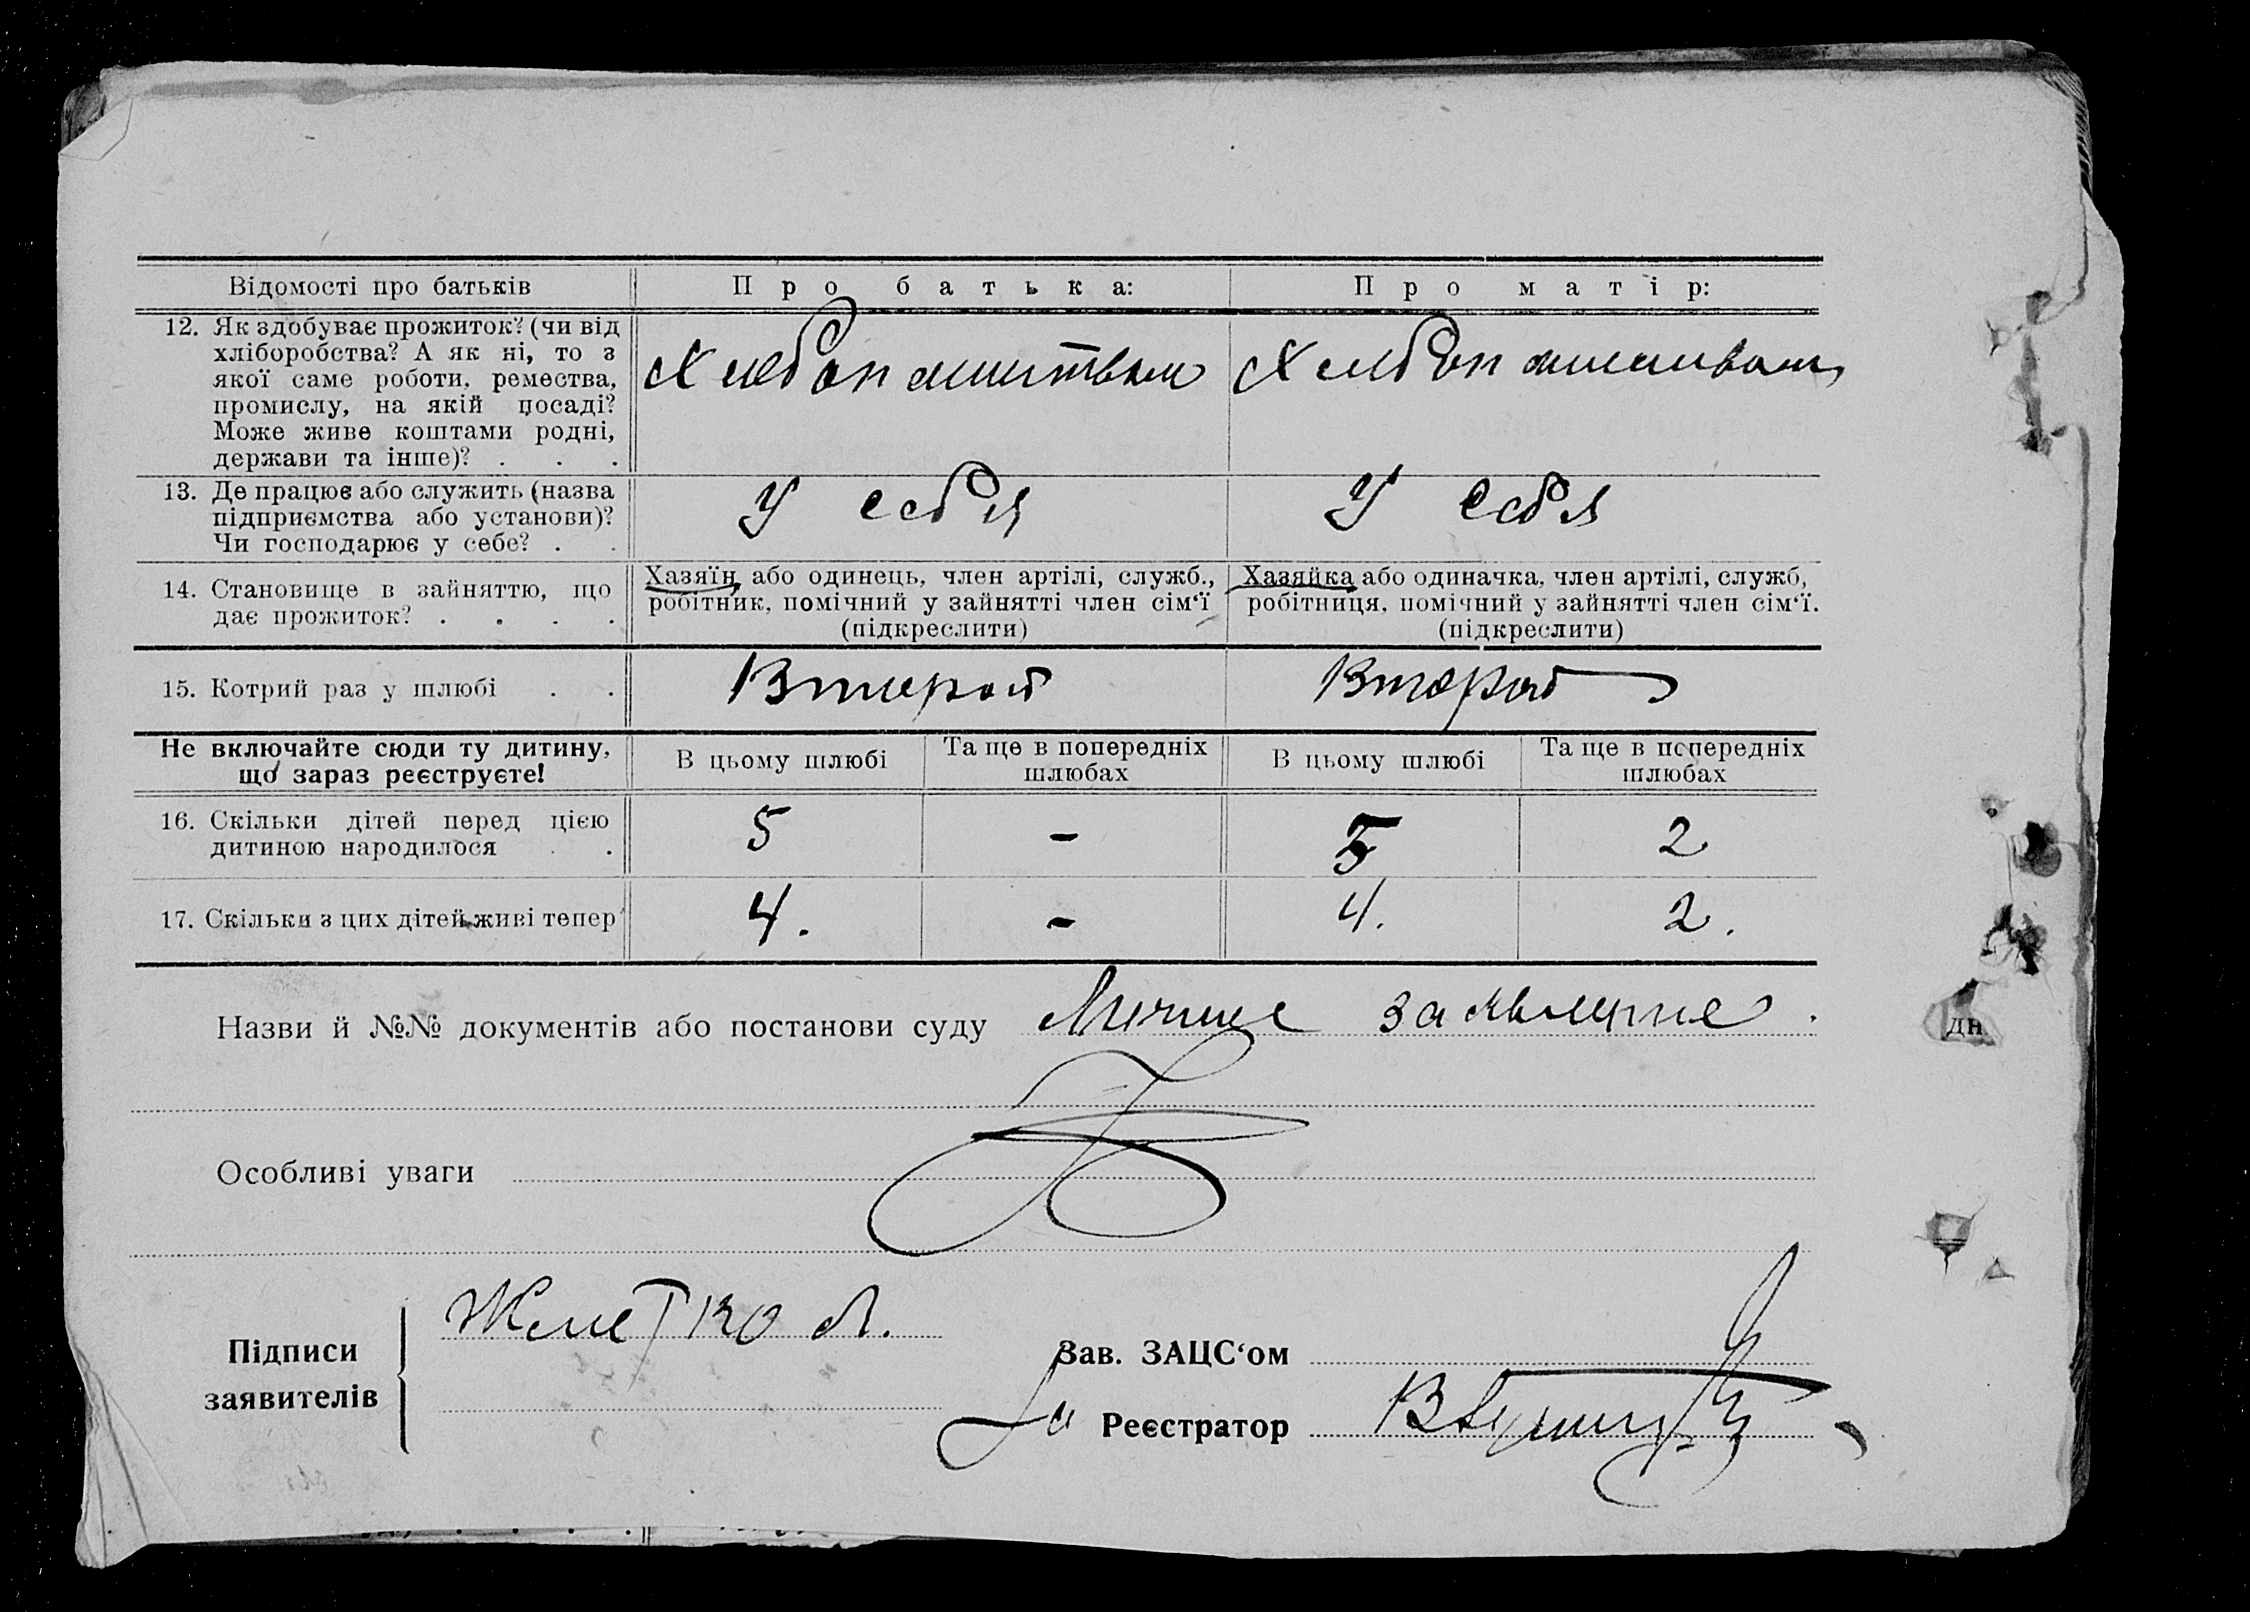 Відомості про батьків
Про батька:
Про матір:
12. Як здобуває прожиток? (чи від
хліборобства? А як ні, то з
якої саме роботи, ремества,
промислу, на якій посаді?
Може живе коштами родні,
держави та інше)? . . .
Хлебопашеством
Хлебопашеством
13. Де працює або служить (назва
підприємства або установи)?
Чи господарює у себе? . .
У себя
У себя
14. Становище в зайняттю, що
дає прожиток? . . . .
Хазяїн, або одинець, член артілі, служб.,
робітник, помічний у зайнятті член сім‘ї
(підкреслити)
Хазяйка або одиначка, член артілі, служб,
робітниця, помічний у зайнятті член сім‘ї.
(підкреслити)
15. Котрий раз у шлюбі . .
Второй
Второй
Не включайте сюди ту дитину,
що зараз реєструєте!
В цьому шлюбі
Та ще в попередніх
шлюбах
В цьому шлюбі
Та ще в попередніх
шлюбах
16. Скільки дітей перед цією
дитиною народилося . .
5
-
5
2
17. Скільки з цих дітей живі тепер
4.
-
4.
2.
Назви й №№ документів або постанови суду Личное заявление.
дн
Особливі уваги
Підписи
заявителів
Зав. ЗАЦС‘ом
Реєстратор